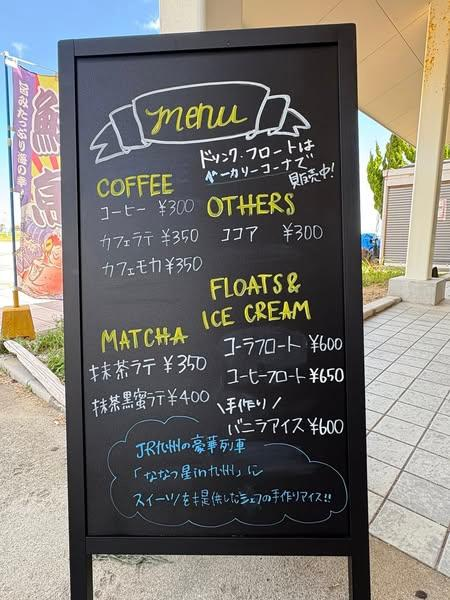 menu
ドリンク・フロートは
ベーカリーコーナーで
販売中!
COFFEE
コーヒー ¥300
カフェラテ ¥350
カフェモカ ¥350
OTHERS
ココア ¥300
FLOATS &
ICE CREAM
コーラフロート ¥600
コーヒーフロート ¥650
\手作り/
バニラアイス ¥600
MATCHA
抹茶ラテ ¥350
抹茶黒蜜ラテ ¥400
JR九州の豪華列車
「ななつ星in九州」に
スイーツを提供したシェフの手作りアイス!!
鮮魚
旨みたっぷり海の幸